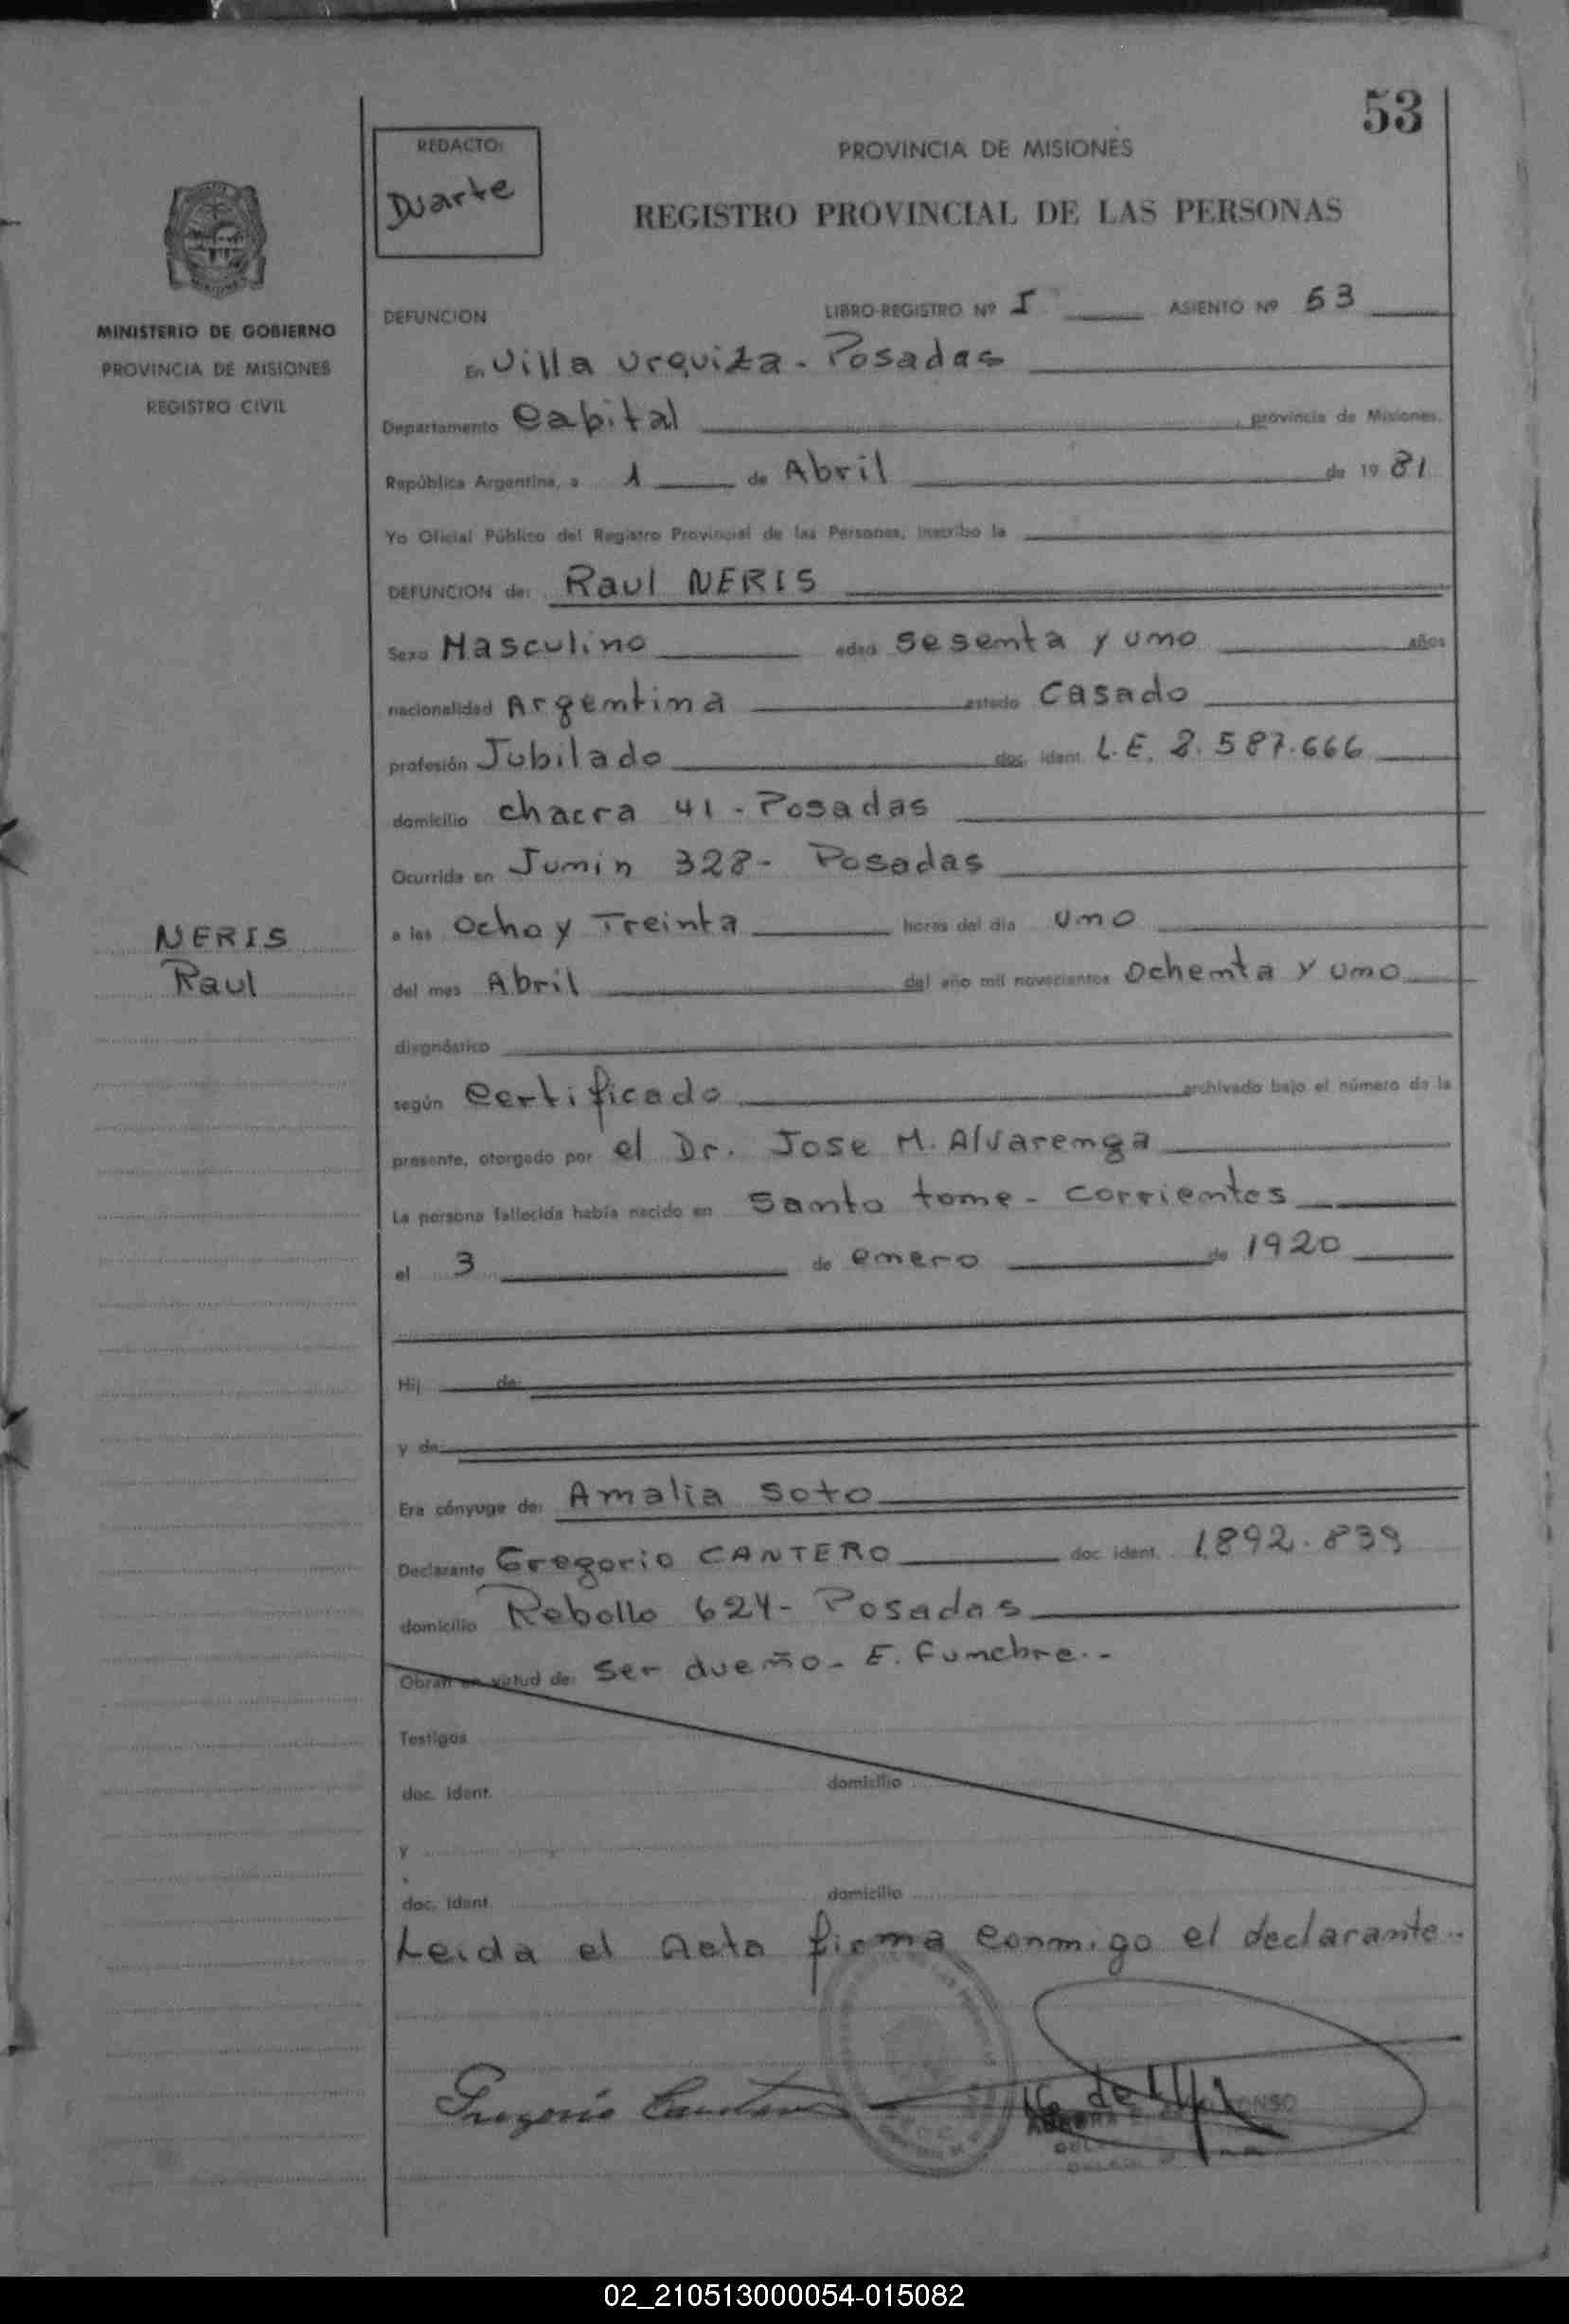 53
REDACTO:
Duarte
PROVINCIA DE MISIONES
REGISTRO PROVINCIAL DE LAS PERSONAS
MINISTERIO DE GOBIERNO
PROVINCIA DE MISIONES
REGISTRO CIVIL
DEFUNCION LIBRO-REGISTRO Nº I ASIENTO Nº 53
En Villa Urquiza - Posadas
Departamento Capital, provincia de Misiones.
República Argentina, a 1 de Abril de 1981
Yo Oficial Público del Registro Provincial de las Personas, inscribo la
DEFUNCION de: Raul NERIS
Sexo Masculino edad Sesenta y uno años
nacionalidad Argentina estado Casado
profesión Jubilado doc. ident. L.E. 2.587.666
domicilio chacra 41 - Posadas
Ocurrida en Junin 328 - Posadas
NERIS
Raul
a las Ocho y Treinta horas del día uno
del mes Abril del año mil novecientos Ochenta y uno
diagnóstico
según Certificado archivado bajo el número de la
presente, otorgado por el Dr. Jose M. Alvarenga
La persona fallecida había nacido en Santo tome - Corrientes
el 3 de enero de 1920
Hij de:
y de:
Era cónyuge de: Amalia Soto
Declarante Gregorio CANTERO doc. ident. 1.892.839
domicilio Rebollo 624 - Posadas
Obran en virtud de: Ser dueño - E. Funebre.-
Testigos
doc. ident. domicilio
y
doc. ident. domicilio
Leida el Acta firma conmigo el declarante.-
Gregorio Cantero
02_210513000054-015082